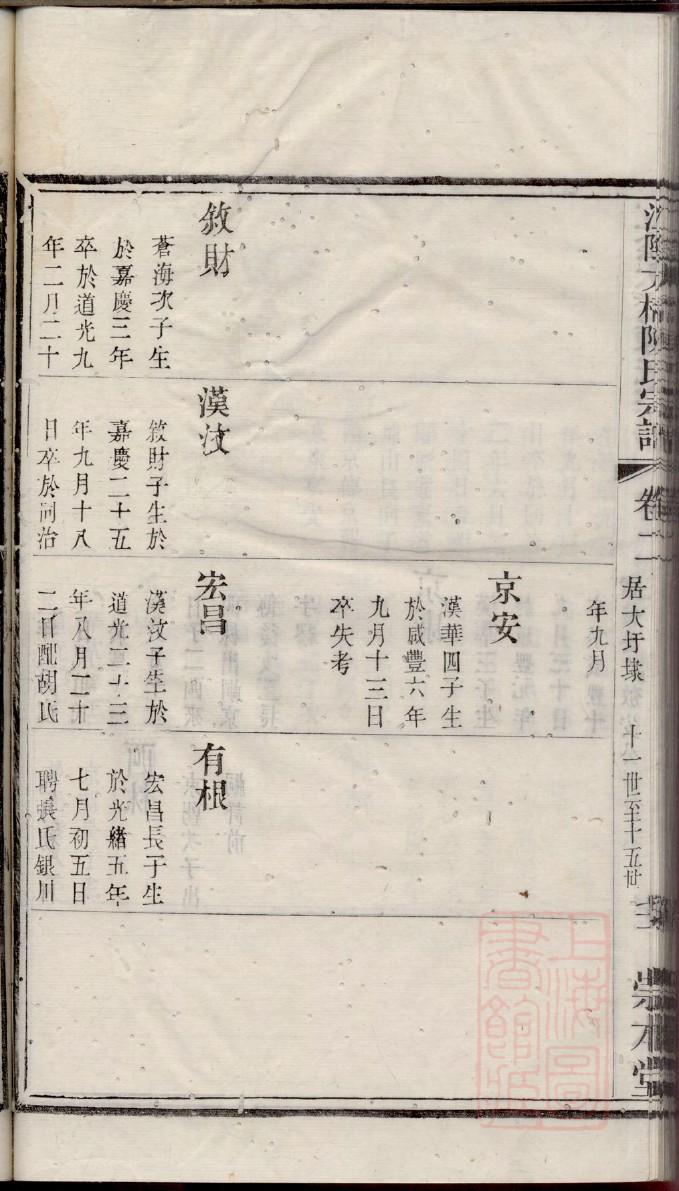 江陰大橋陳氏宗譜
卷二
居大圩埭
十一世至十五世
崇本堂
敘財
蒼海次子生
於嘉慶三年
卒於道光九
年二月二十
漢汶
敘財子生於
嘉慶二十五
年九月十八
日卒於同治
年九月
京安
漢華四子生
於咸豐六年
九月十三日
卒失考
宏昌
漢汶子生於
道光二十三
年八月二十
二日配胡氏
有根
宏昌長子生
於光緒五年
七月初五日
聘張氏銀川
上海圖
書館藏